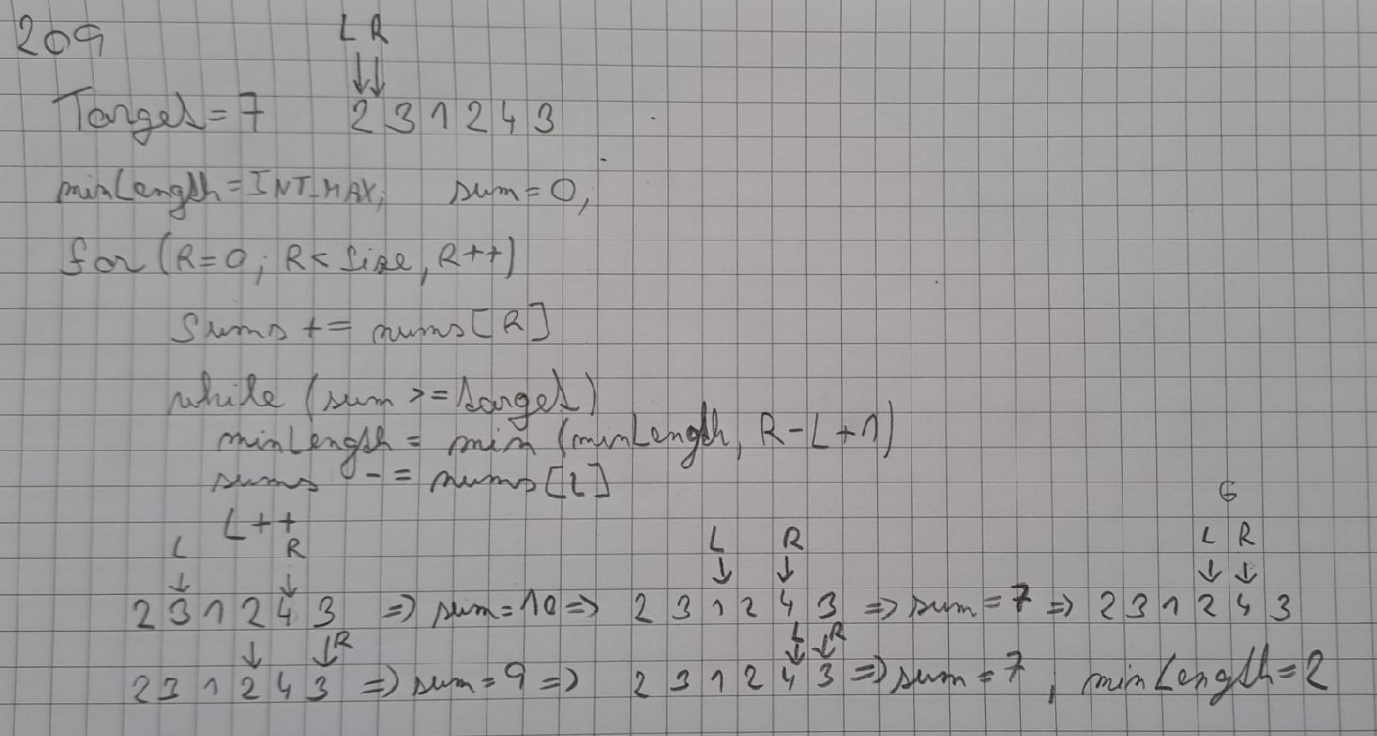 209
L R
↓↓
Target = 7 2 3 1 2 4 3
minLength = INT_MAX; sum = 0,
for (R=0; R< Size, R++)
Sums += nums [R]
while (sum >= target)
minLength = min (minLength, R-L+1)
sums -= nums [L]
L++
6
L R L R L R
↓ ↓ ↓ ↓ ↓ ↓
2 3 1 2 4 3 => sum = 10 => 2 3 1 2 4 3 => sum = 7 => 2 3 1 2 4 3
↓ ↓R L↓ ↓R
2 3 1 2 4 3 => sum = 9 => 2 3 1 2 4 3 => sum = 7, minLength = 2